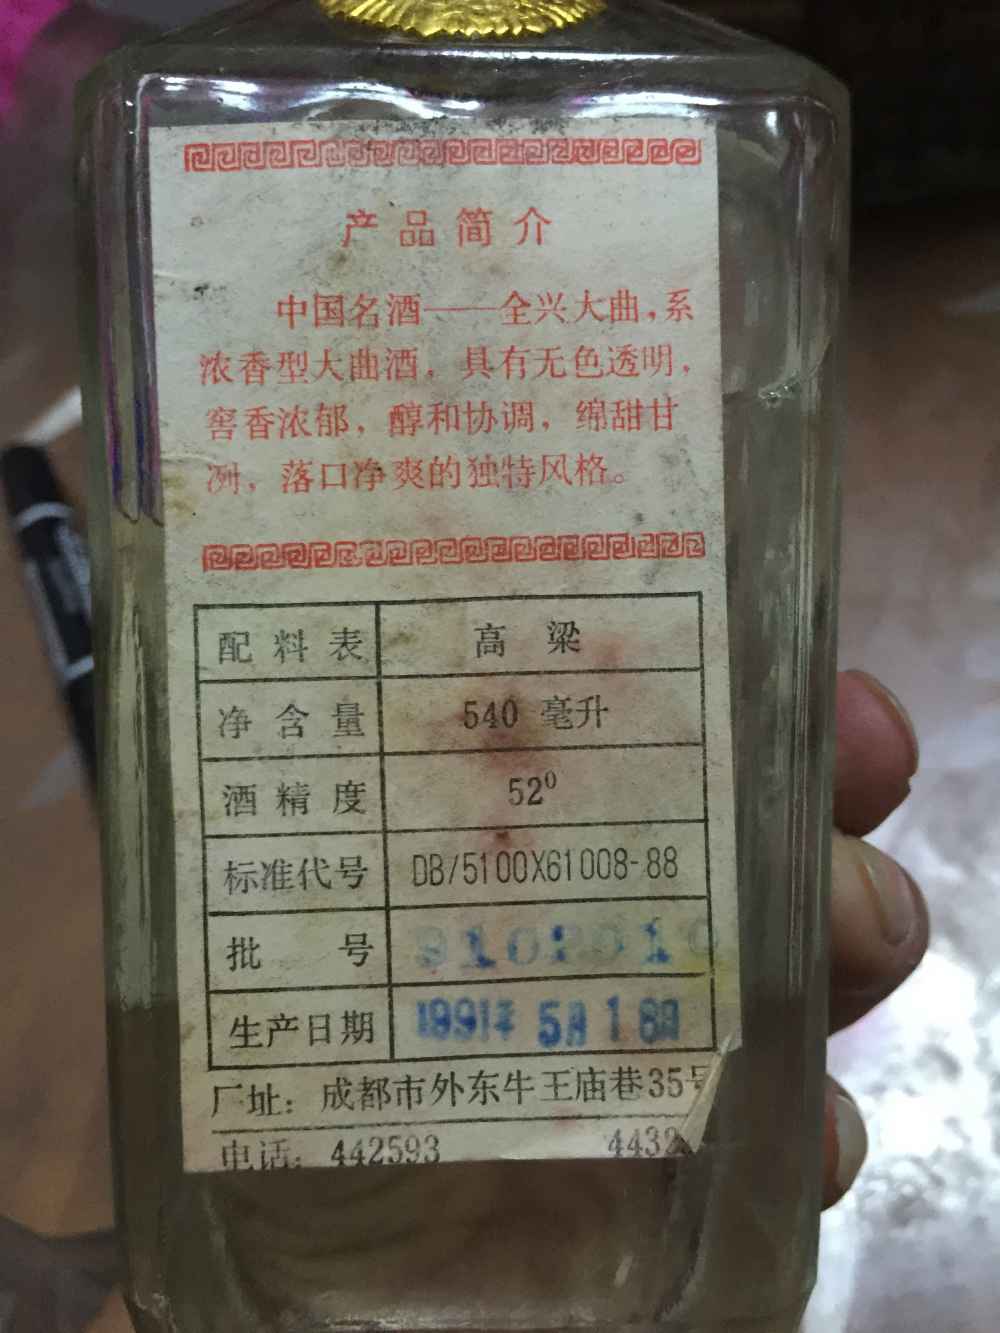 产品简介
中国名酒——全兴大曲，系
浓香型大曲酒，具有无色透明，
窖香浓郁，醇和协调，绵甜甘
冽，落口净爽的独特风格。
配料表 高 粱
净含量 540 毫升
酒精度 52⁰
标准代号 DB/5100X61008-88
批 号
生产日期 1991年 5月 18日
厂址：成都市外东牛王庙巷35号
电话：442593 4432